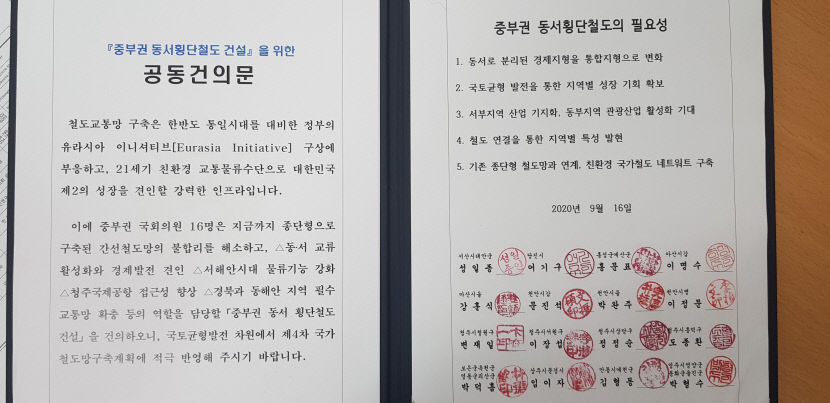 『중부권 동서횡단철도 건설』을 위한
공동건의문
철도교통망 구축은 한반도 통일시대를 대비한 정부의
유라시아 이니셔티브[Eurasia Initiative] 구상에
부응하고, 21세기 친환경 교통물류수단으로 대한민국
제2의 성장을 견인할 강력한 인프라입니다.
이에 중부권 국회의원 16명은 지금까지 종단형으로
구축된 간선철도망의 불합리를 해소하고, △동·서 교류
활성화와 경제발전 견인 △서해안시대 물류기능 강화
△청주국제공항 접근성 향상 △경북과 동해안 지역 필수
교통망 확충 등의 역할을 담당할「중부권 동서 횡단철도
건설」을 건의하오니, 국토균형발전 차원에서 제4차 국가
철도망구축계획에 적극 반영해 주시기 바랍니다.
중부권 동서횡단철도의 필요성
1. 동서로 분리된 경제지형을 통합지형으로 변화
2. 국토균형 발전을 통한 지역별 성장 기회 확보
3. 서부지역 산업 기지화, 동부지역 관광산업 활성화 기대
4. 철도 연결을 통한 지역별 특성 발현
5. 기존 종단형 철도망과 연계, 친환경 국가철도 네트워트 구축
2020년 9월 16일
서산시태안군 당진시 홍성군예산군 아산시갑
성일종 어기구 홍문표 이명수
아산시을 천안시갑 천안시을 천안시병
강훈식 문진석 박완주 이정문
청주시청원구 청주시서원구 청주시상당구 청주시흥덕구
변재일 이장섭 정정순 도종환
보은군옥천군
영동군괴산군 상주시문경시 안동시예천군 영주시영양군
봉화군울진군
박덕흠 임이자 김형동 박형수